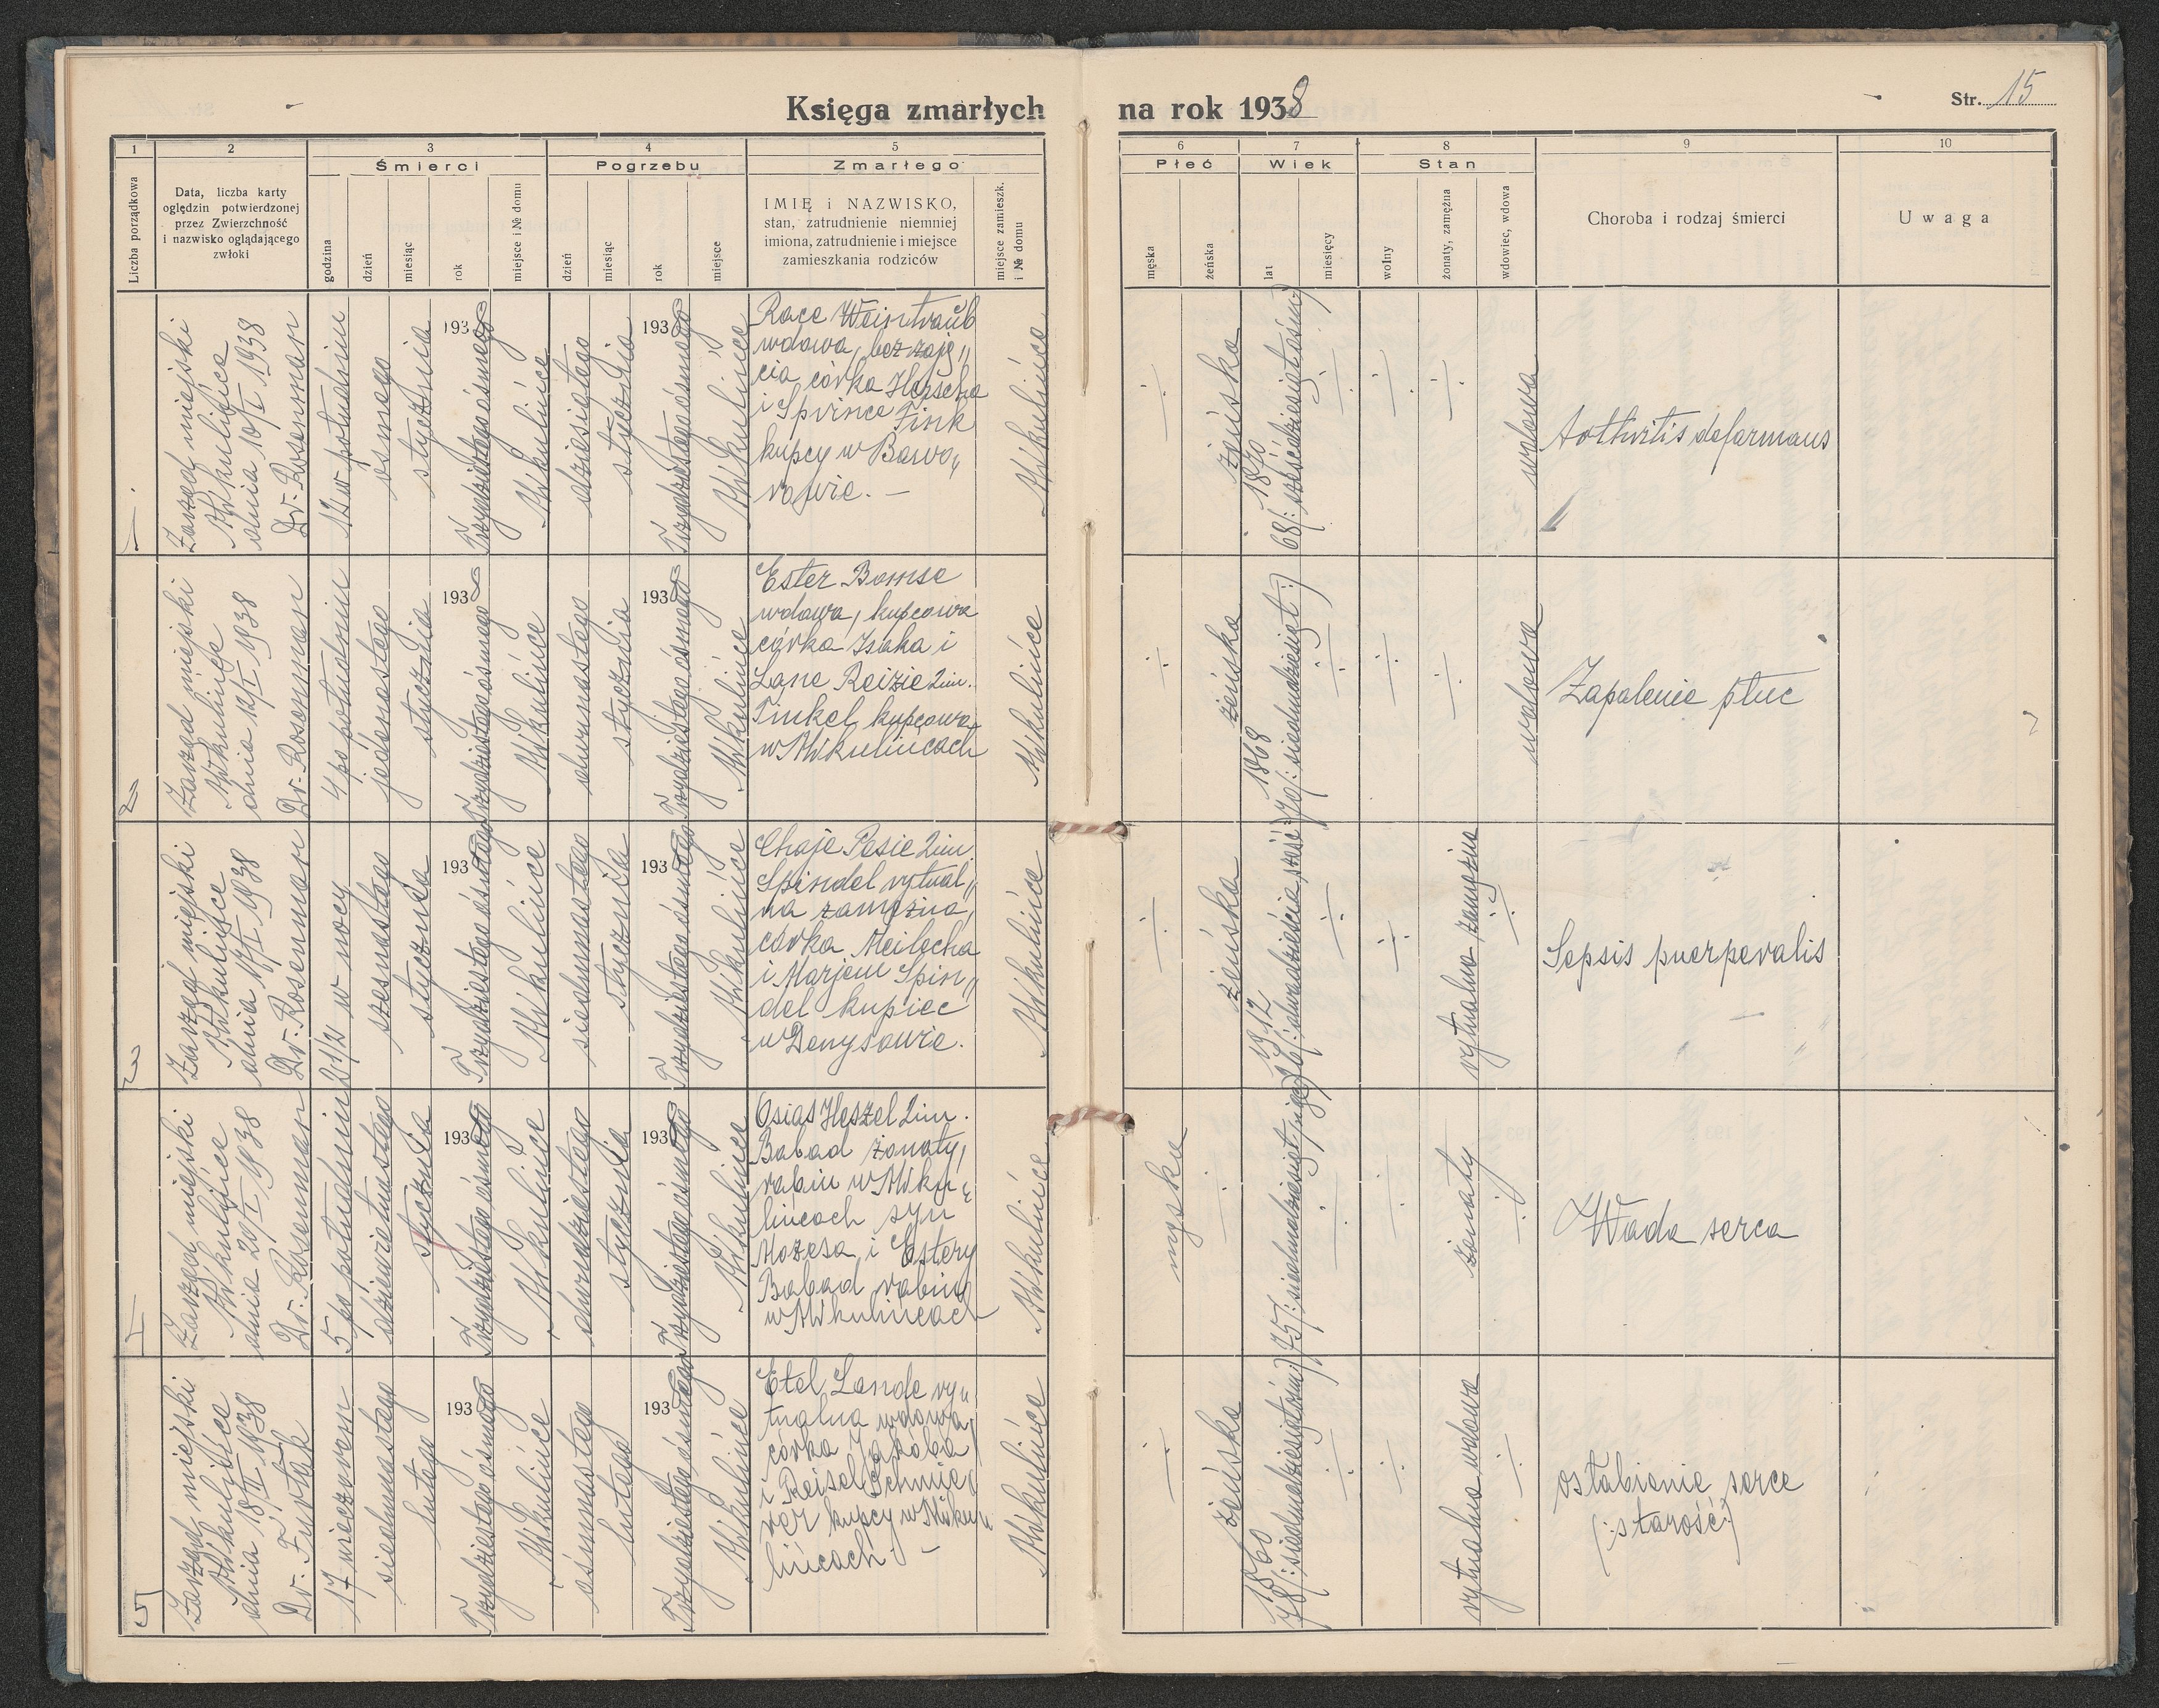 Księga zmarłych na rok 1938
Str. 15
1
2
3
4
5
6
7
8
9
10
Śmierci
Pogrzebu
Zmarłego
Płeć
Wiek
Stan
Liczba porządkowa
Data, liczba karty
oględzin potwierdzonej
przez Zwierzchność
i nazwisko oglądającego
zwłoki
godzina
dzień
miesiąc
rok
miejsce i № domu
dzień
miesiąc
rok
miejsce
IMIĘ i NAZWISKO,
stan, zatrudnienie niemniej
imiona, zatrudnienie i miejsce
zamieszkania rodziców
miejsce zamieszk.
i № domu
męska
żeńska
lat
miesięcy
wolny
żonaty, zamężna
wdowiec, wdowa
Choroba i rodzaj śmierci
Uwaga
1
Zarząd miejski
Mikulińce
dnia 10/I 1938
Dr. Rosenman
12 w południu
ósmego
stycznia
1938
Trzydziestego ósmego
Mikulińce
dziesiątego
stycznia
1938
Trzydziestego ósmego
Mikulińce
Race Weintraub
wdowa, bez zaję„
cia, córka Herscha
i Sprince Fink
kupcy w Bawo„
rowie. —
Mikulińce
żeńska
1870
68/: sześćdziesiąt ośm :/
wdowa
Arthritis deformans
2
Zarząd miejski
Mikulińce
dnia 12/I 1938
Dr. Rosenman
4 po południu
jedenastego
stycznia
1938
Trzydziestego ósmego
Mikulińce
dwunastego
stycznia
1938
Trzydziestego ósmego
Mikulińce
Ester Bomse
wdowa, kupcowa
córka Isaka i
Lane Reizie 2im.
Finkel kupcowa
w Mikulińcach
Mikulińce
żeńska
1868
70/: siedmdziesiąt :/
wdowa
Zapalenie płuc
3
Zarząd miejski
Mikulińce
dnia 17/I 1938
Dr. Rosenman
2 1/2 w nocy
szesnastego
stycznia
1938
Trzydziestego ósmego
Mikulińce
siedmnastego
stycznia
1938
Trzydziestego ósmego
Mikulińce
Chaje Pesie 2im.
Spindel rytual„
na zamężna,
córka Meilecha
i Marjem Spin„
del kupiec
w Denysowie.
Mikulińce
żeńska
1912
26/: dwadzieścia sześć :/
rytualna zamężna
Sepsis puerperalis
4
Zarząd miejski
Mikulińce
dnia 20/I 1938
Dr. Rosenman
5 po południu
dziewiętnastego
stycznia
1938
Trzydziestego ósmego
Mikulińce
dwudziestego
stycznia
1938
Trzydziestego ósmego
Mikulińce
Osias Heszel 2im.
Babad żonaty,
rabin w Miku„
lińcach syn
Mozesa i Estery
Babad rabin
w Mikulińcach
Mikulińce
męska
75/: siedmdziesiąt pięć :/
żonaty
Wada serca
5
Zarząd miejski
Mikulińce
dnia 18/II 1938
Dr. Furtak
17 wieczorem
siedmnastego
lutego
1938
Trzydziestego ósmego
Mikulińce
ośmnastego
lutego
1938
Trzydziestego ósmego
Mikulińce
Etel Lande ry„
tualna wdowa,
córka Jakóba
i Reisel
kupcy w Miku„
lińcach. —
Mikulińce
żeńska
1860
78/: siedmdziesiąt ośm :/
rytualna wdowa
osłabienie serce
(: starość :)